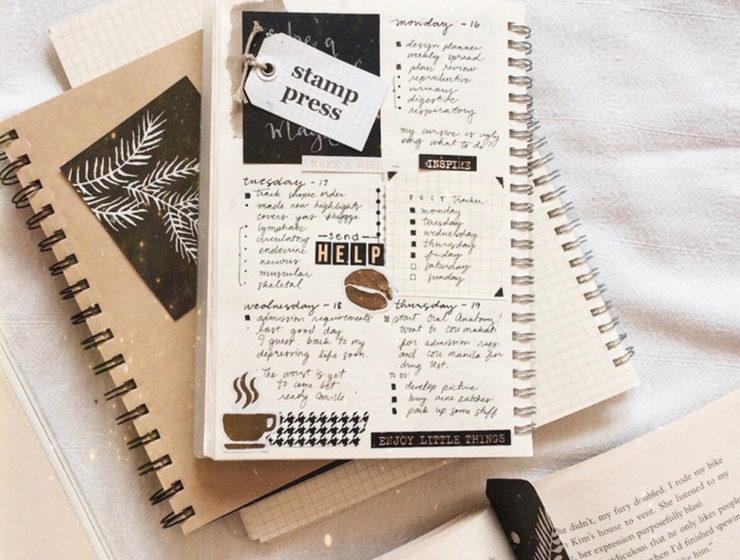 stamp
press
MAKE A WISH
monday - 16
design planner
weekly spread
plan review
reproductive
urinary
digestive
respiratory
my cursive is ugly
omg what to do?
INSPIRE
tuesday - 17
track shopee order
made new highlights
covers yas
lymphatic
circulatory
endocrine
nervous
muscular
skeletal
send
HELP
POST Tracker:
monday
tuesday
wednesday
thursday
friday
saturday
sunday
wednesday - 18
admission requirements
last good day
I guess. back to my
depressing life soon.
"The worst is yet
to come. Get
ready Camille."
thursday - 19
start Oral Anatomy!
went to ceu makati
for admission reqs.
and ceu manila for
drug test.
TO DO:
develop picture
buy wine patches
pack up some stuff
ENJOY LITTLE THINGS
he didn't, my fury doubled. I rode my bike
Kim's house to vent. She listened to my
, her expression purposefully blasé.
oubtain that he only likes people
hen I'd finished spewin
him."